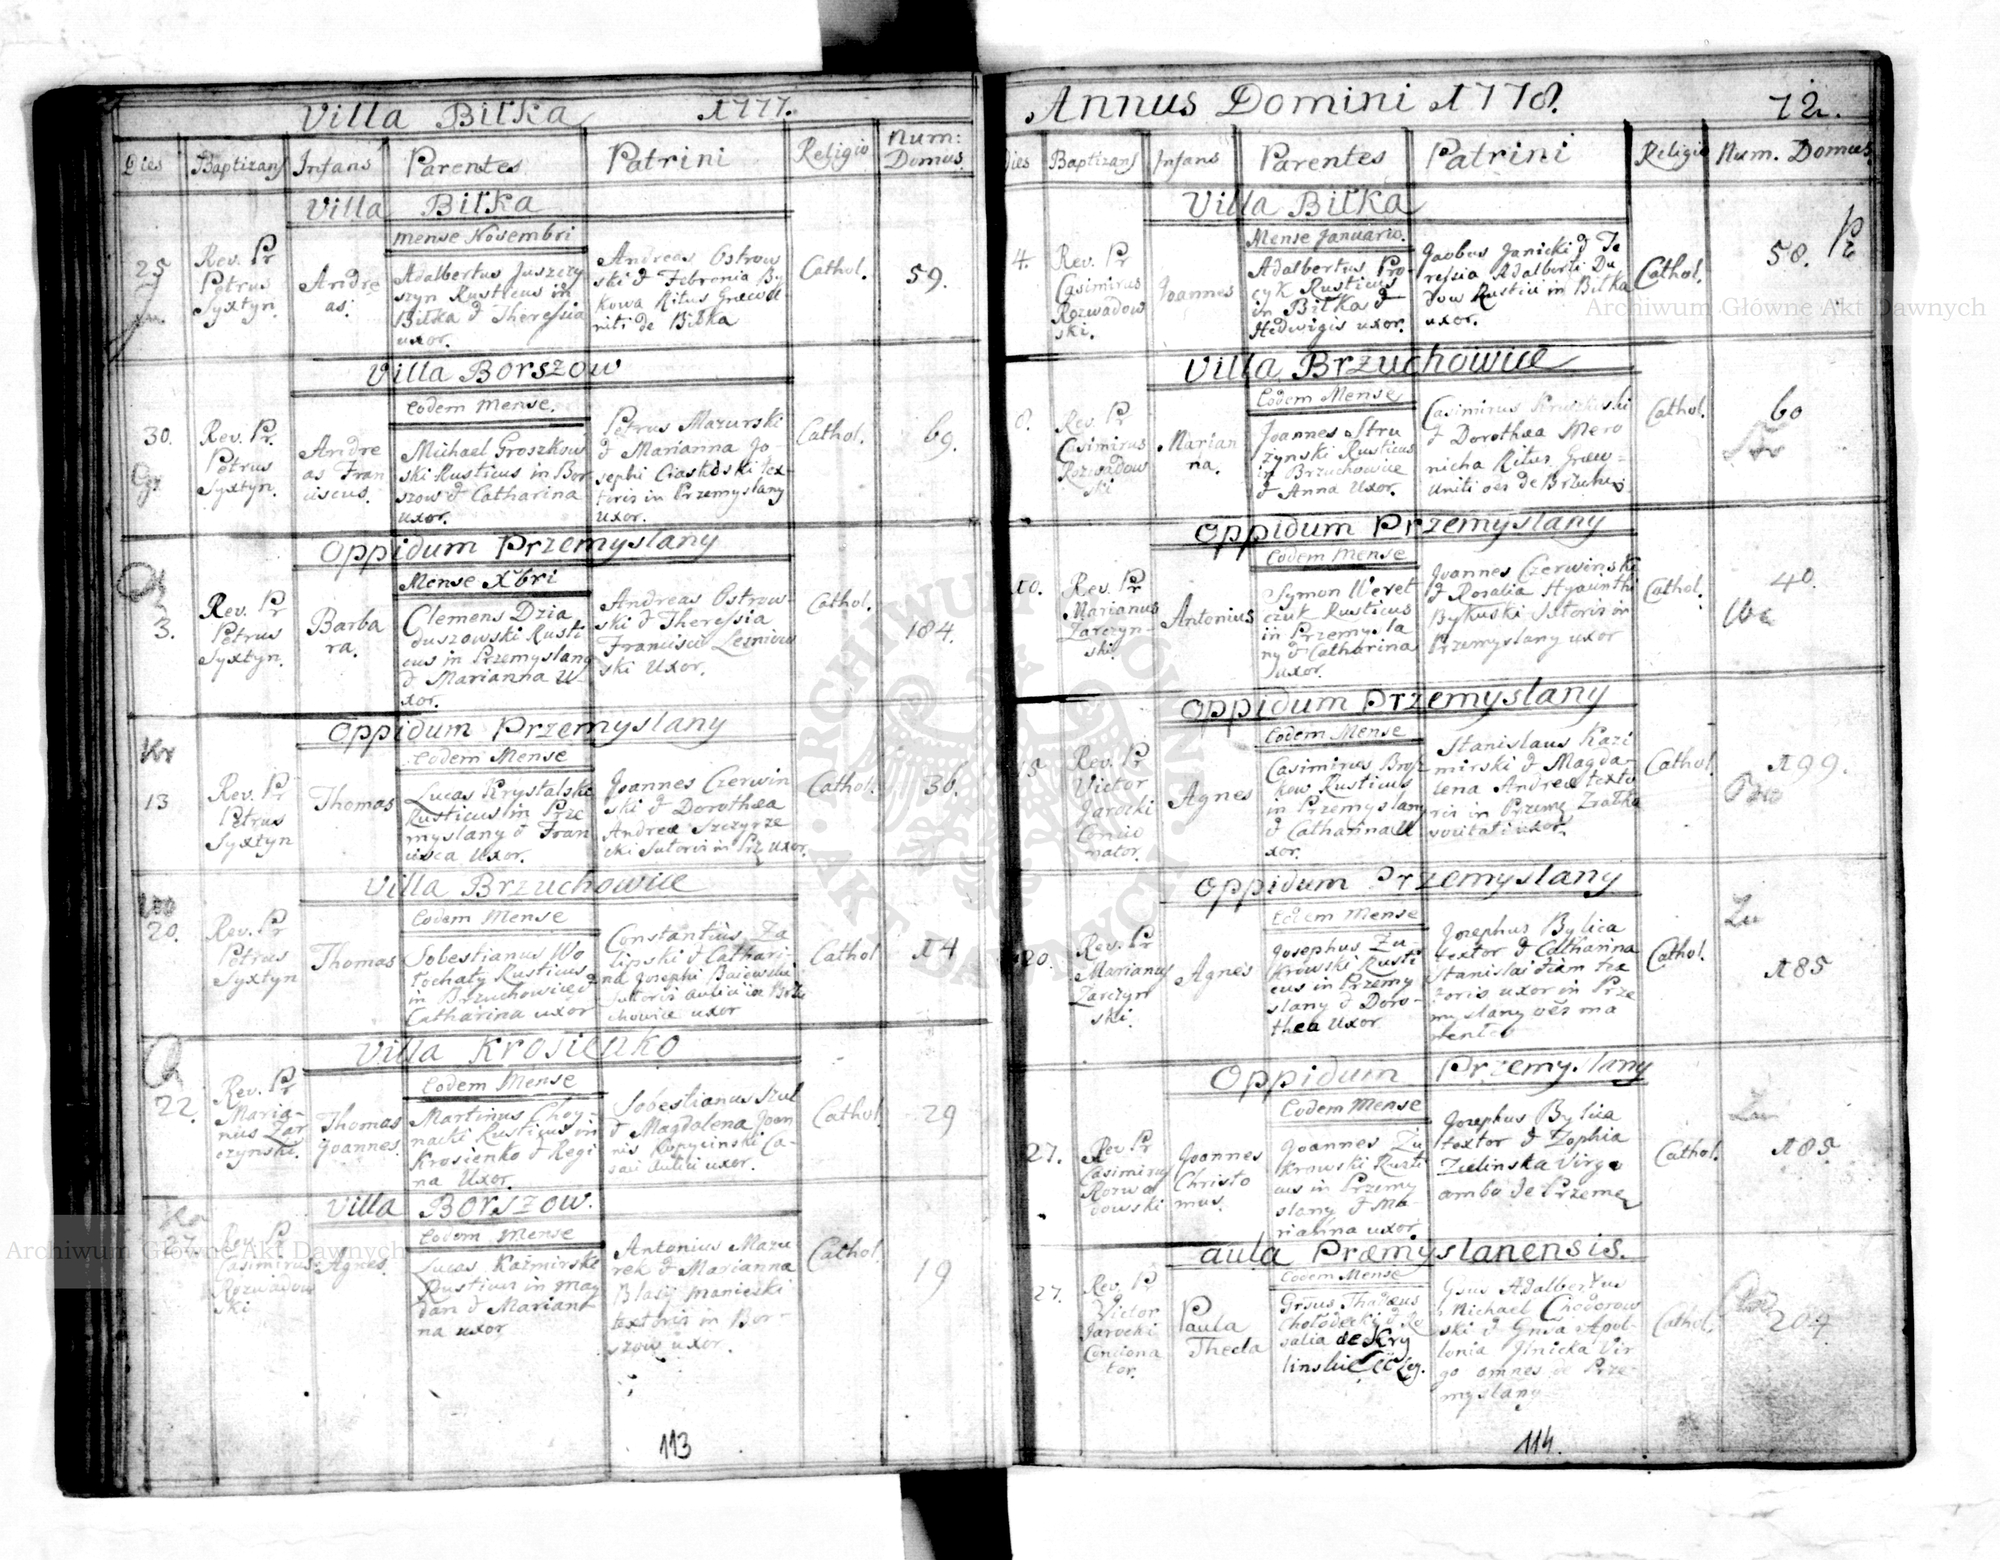 Villa Biłka 1777.
Dies Baptizans Infans Parentes Patrini Religio Num: Domus
Villa Biłka
Mense Novembri
25
Rev. Pr
Petrus
Syxtyn.
Andre
as.
Adalbertus Juszczy
szyn Rusticus in
Biłka & Theressia
uxor.
Andreas Ostrow
ski & Febronia By
kowa Ritus Graeco U
niti de Biłka
Cathol.
59.
Villa Borszow
Eodem Mense.
30.
Gr
Rev. Pr.
Petrus
Syxtyn.
Andre
as Fran
ciscus.
Michael Groszkow
ski Rusticus in Bor
szow & Catharina
uxor.
Petrus Mazurski
& Marianna Jo-
sephi Ciaskoski Tex-
toris in Przemyslany
uxor.
Cathol.
69.
Oppidum Przemyslany
Mense Xbri
3.
Rev. Pr
Petrus
Syxtyn.
Barba
ra.
Clemens Dzia
duszowski Rusti
cus in Przemyslany
& Marianna U-
xor.
Andreas Ostrow-
ski & Theressia
Francisci Lesniow
ski Uxor.
Cathol.
184.
Oppidum Przemyslany
Eodem Mense
Kr
13
Rev. Pr
Petrus
Syxtyn
Thomas
Lucas Krystalski
Rusticus in Prze
myslany & Fran
cisca Uxor.
Joannes Czerwin
ski & Dorothea
Andreæ Szczyrze
cki Sutoris in Prz uxor.
Cathol.
36.
Villa Brzuchowice
Eodem Mense
20.
Rev. Pr
Petrus
Syxtyn
Thomas
Sobestianus Wo
łochaty Rusticus
in Brzuchowice &
Catharina uxor
Constantius Za
lipski & Cathari
na Josephi
Sutoris aulici in Brzu
chowice uxor
Cathol
14
Villa Krosienko
Eodem Mense
22.
Rev. Pr
Maria-
nus Zar
czynski.
Thomas
Joannes.
Martinus Choy-
nacki Rusticus in
Krosienko & Regi
na Uxor.
Sobestianus Szul
& Magdalena Joan
nis Kopycinski Ca-
sari aulici uxor.
Cathol.
29
Villa Borszow.
Eodem Mense
27.
Rev. Pr
Casimirus
Rozwadow
ski
Agnes.
Lucas Kazmirski
Rusticus in May
dan & Marian-
na uxor
Antonius Mazu
rek & Marianna
Blasij Manieski
textoris in Bor-
szow uxor.
Cathol
19
113
Annus Domini 1778. 72.
Dies Baptizans Infans Parentes Patrini Religio Num. Domus
Villa Biłka
Mense Januario.
4.
Rev. Pr
Casimirus
Rozwadow
ski.
Joannes
Adalbertus Pro-
cyk Rusticus
in Biłka &
Hedwigis uxor.
Jacobus Janicki & Te
ressia Adalberti Du
dow Rustici in Biłka
uxor.
Cathol.
58.
Pr
Villa Brzuchowice
Eodem Mense
8.
Rev. Pr
Casimirus
Rozwadow
ski
Marian
na.
Joannes Stru
zynski Rusticus
in Brzuchowice
& Anna Uxor.
Casimirus
& Dorothea Mero
nicha Ritus Graeco-
Uniti oes de Brzucho
Cathol.
60
Oppidum Przemyslany
Eodem Mense
10.
Rev. Pr
Marianus
Zarczyn-
ski
Antonius
Symon Weret
czuk Rusticus
in Przemysla
ny & Catharina
uxor.
Joannes Czerwinski
& Rosalia Hyacinthi
Bykuski Sutoris in
Przemyslany uxor
Cathol.
40.
We
Oppidum Przemyslany
Eodem Mense
15
Rev. Pr
Victor
Jarocki
Concio
nator.
Agnes
Casimirus Brosz
kow Rusticus
in Przemyslany
& Catharina U
xor.
Stanislaus Kazi
mirski & Magda-
lena Andreæ texto
ris in Przemy
uxor.
Cathol.
199.
Bro
Oppidum Przemyslany
Eodem Mense
20.
Rev. Pr
Marianus
Zarczyn
ski.
Agnes
Josephus Zu
krowski Rusti
cus in Przemy
slany & Doro-
thea Uxor
Josephus Bylica
textor & Catharina
Stanislai tex
toris uxor in Prze
myslany oes ma
nentes
Cathol.
Zu
185
Oppidum Przemyslany
Eodem Mense
27.
Rev. Pr
Casimirus
Rozwa
dowski
Joannes
Christo
mus.
Joannes Zu
krowski Rusti
cus in Przemy
slany & Ma-
rianna uxor.
Josephus Bylica
textor & Zophia
Zielinska Virgo
ambo de Przemy
Cathol.
Zu
185
aula Præmyslanensis.
Eodem Mense
27.
Rev. Pr
Victor
Jarocki
Conciona
tor.
Paula
Thecla
Gnsus Thadæus
Chołodecki & Ro
salia de Kry
linskie Coleg.
Gsus Adalbertus
Michael Chodorow
ski & Gnsa Apol-
lonia Jlnicka Vir
go omnes de Prze-
myslany
Cathol.
204
114.
Archiwum Główne Akt Dawnych
Archiwum Główne Akt Dawnych
ARCHIWUM GŁÓWNE AKT DAWNYCH